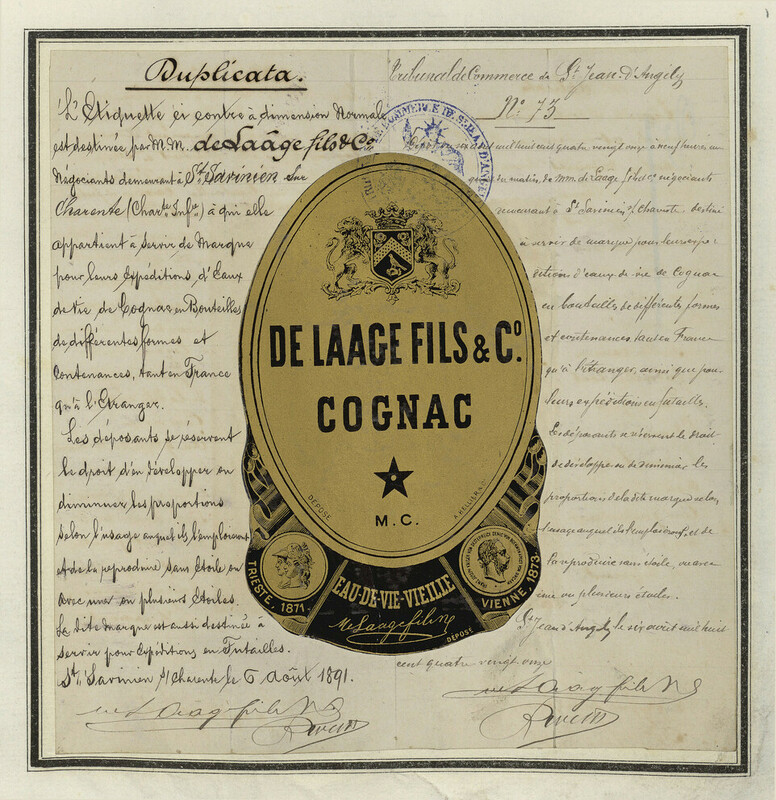 Duplicata.
L'Etiquette ci contre à dimension Normale
est destinée, par M.M. de Laâge fils & Co
Négociants demeurant à St Savinien sur
Charente (Charte Infre) à qui elle
appartient à servir de Marque
pour leurs Expéditions d'Eaux
de Vie de Cognac en Bouteilles
de différentes formes et
Contenances, tant en France
qu'à l'Etranger.
Les déposants se réservent
le droit d'en développer ou
diminuer les proportions
selon l'usage auquel ils l'emploieront
et de la reproduire sans Etoile ou
avec une ou plusieurs Etoiles.
La dite Marque est aussi destinée à
servir pour Expéditions en Futailles.
St Savinien s/Charente le 6 Août 1891.
de Laage fils & Co
Tribunal de Commerce de St Jean-d'Angély
No 73
mil huit cent quatre vingt onze à neuf heures
du matin, de mm de Laâge fils & Co négociants
demeurant à St Savinien s/ Charente destiné
à servir de marque pour leurs expé
ditions d'eaux-de-vie de Cognac
en bouteilles de différentes formes
et contenances, tant en France
qu'à l'étranger, ainsi que pour
leurs expéditions en futailles.
Les déposants se réservent le droit
de développer ou de diminuer les
proportions de la dite marque selon
l'usage auquel ils l'emploieront, et de
la reproduire sans étoile, ou avec
une ou plusieurs étoiles.
St Jean d'Angély le six août mil huit
cent quatre vingt onze
de Laage fils & Co
COMMERCE DE ST JEAN D'ANGELY
DE LAAGE FILS & Co.
COGNAC
M.C.
DÉPOSÉ
A. HELLIER & Co
TRIESTE. 1871.
EAU-DE-VIE-VIEILLE
VIENNE. 1873.
de Laage fils & Co
DÉPOSÉ